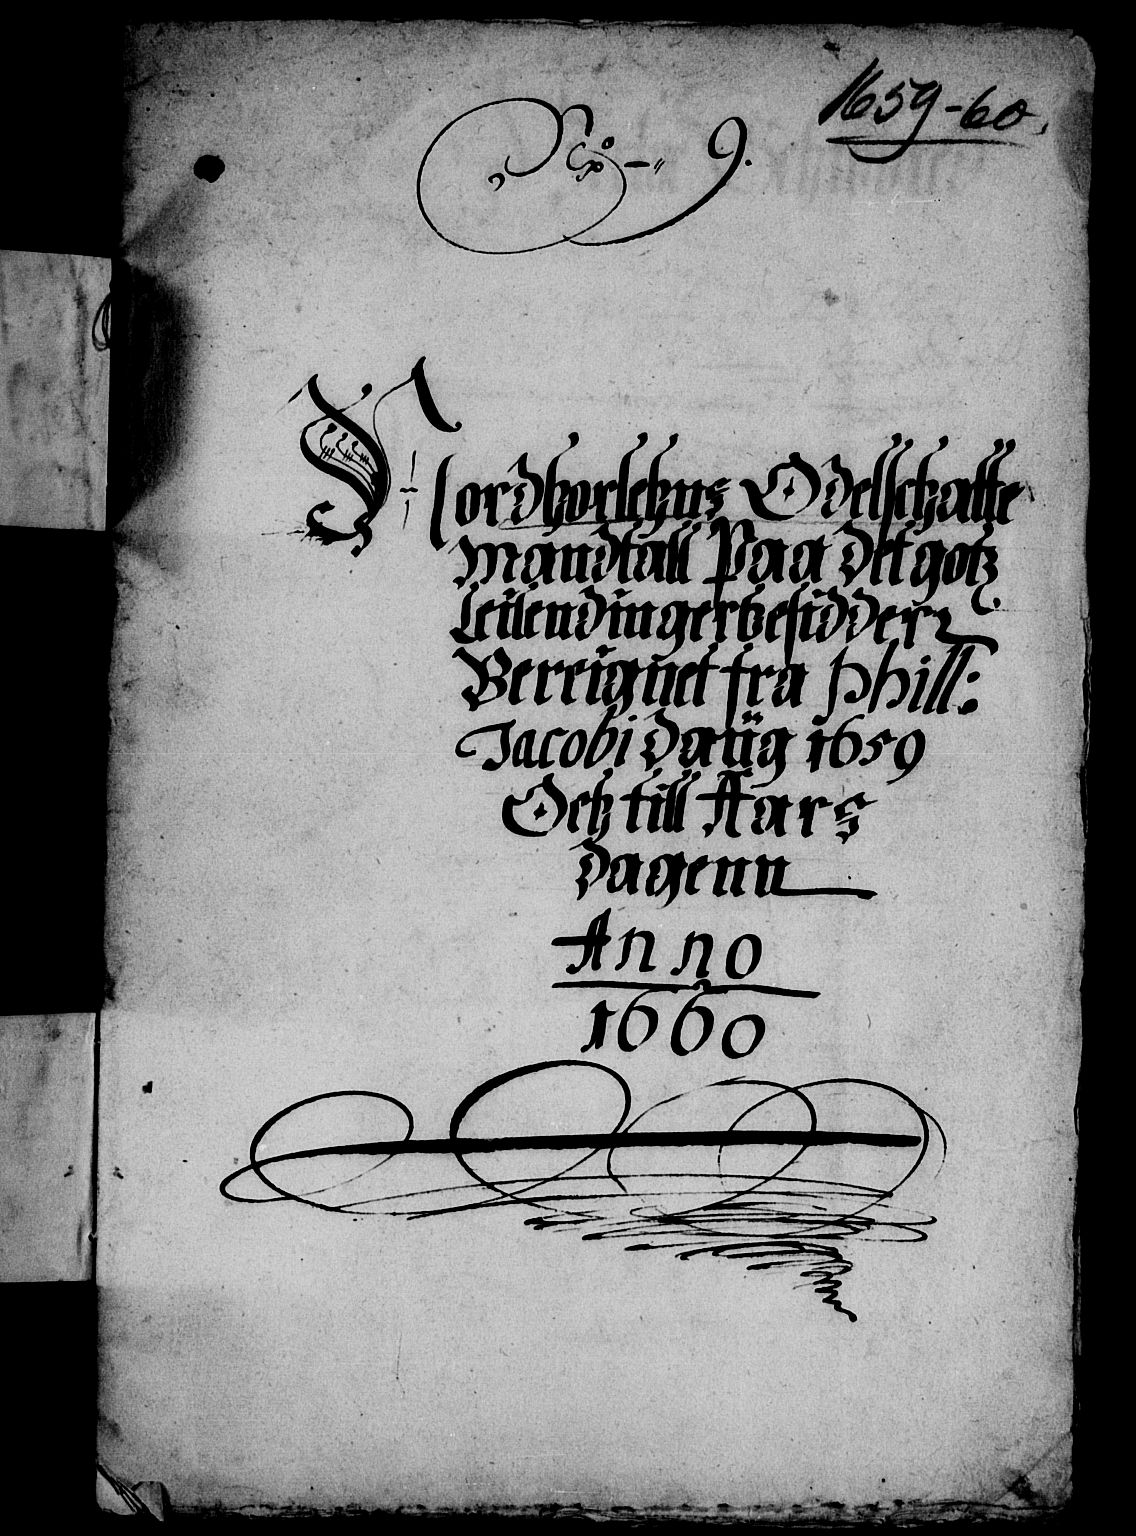 1659-60.
No - 9.
Nordhorlehns Odelschatte
Mandtall Paa det gotz
Leilendinger besidder
Bereignet fra Phill:
Jacobi daüg 1659
Och till Aars
dagenn
Anno
1660